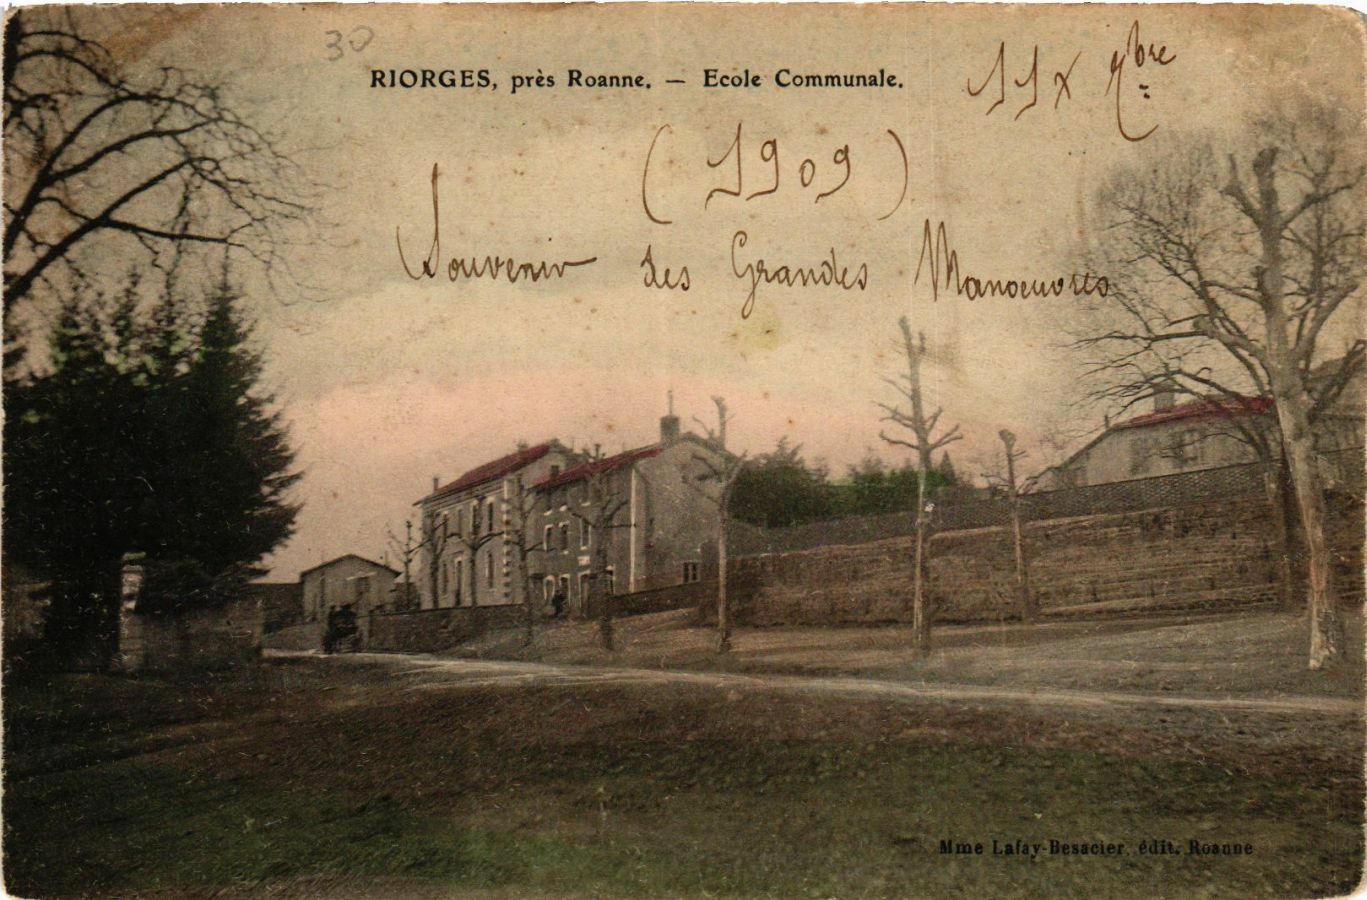 30
RIORGES, près Roanne. — Ecole Communale.
11 X bre
(1909)
Souvenir des Grandes Manoeuvres
Mme Lafay-Besacier, édit. Roanne